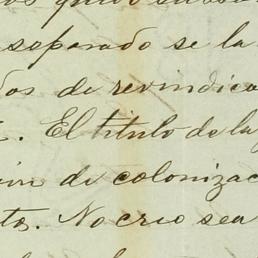 separado se la
dos de revindica
. El titulo de la
ión de colonizac
to. No creo sea